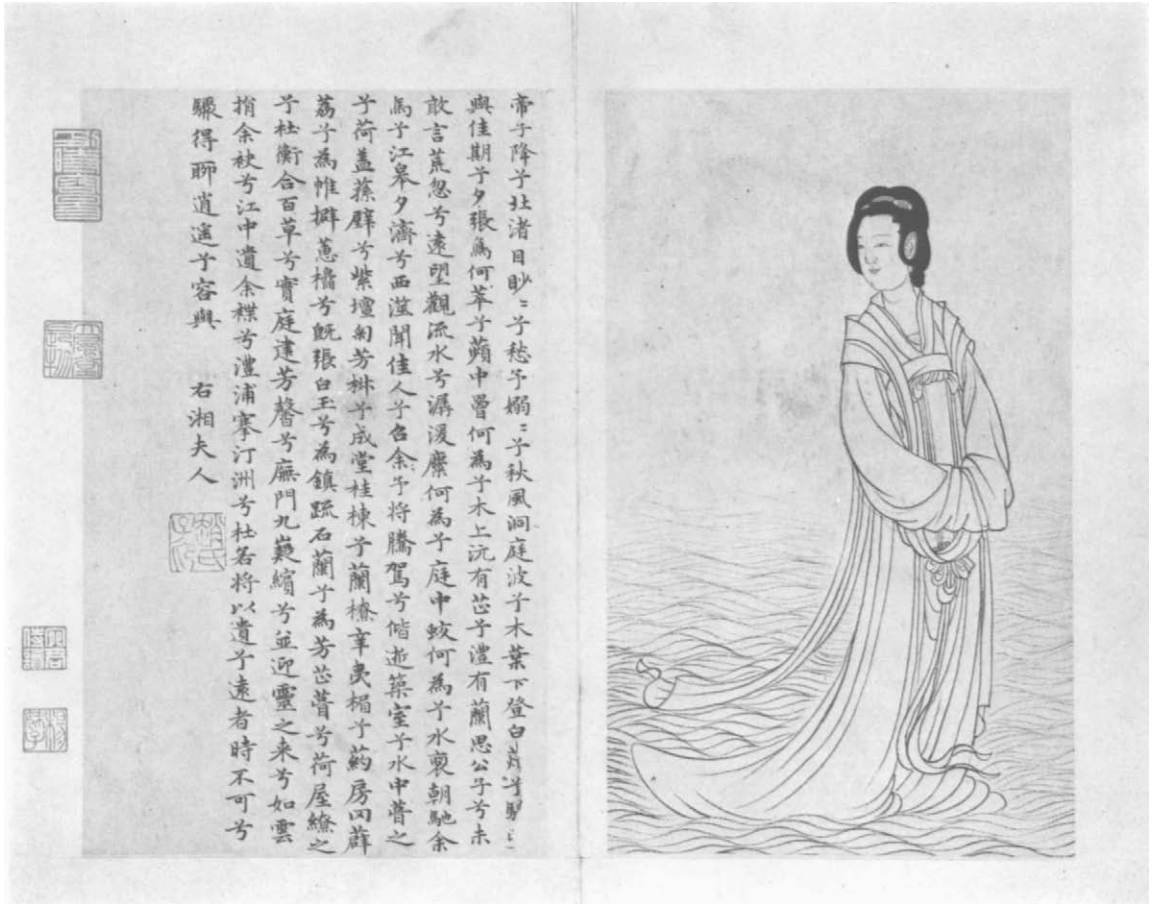 帝子降兮北渚目眇〻兮愁予嫋〻兮秋風洞庭波兮木葉下登白
與佳期兮夕張鳥何萃兮蘋中罾何為兮木上沅有芷兮澧有蘭思公子兮未
敢言荒忽兮遠望觀流水兮潺湲麋何為兮庭中蛟何為兮水裔朝馳余
馬兮江皋夕濟兮西澨聞佳人兮召余兮将騰駕兮偕逝築室兮水中葺之
兮荷盖蓀壁兮紫壇匊芳椒兮成堂桂棟兮蘭橑辛夷楣兮葯房罔薜
荔兮為帷擗蕙櫋兮既張白玉兮為鎮疏石蘭兮為芳芷葺兮荷屋繚之
兮杜衡合百草兮實庭建芳馨兮廡門九嶷繽兮並迎靈之来兮如雲
捐余袂兮江中遺余褋兮澧浦搴汀洲兮杜若将以遺兮遠者時不可兮
驟得聊逍遥兮容與 右湘夫人